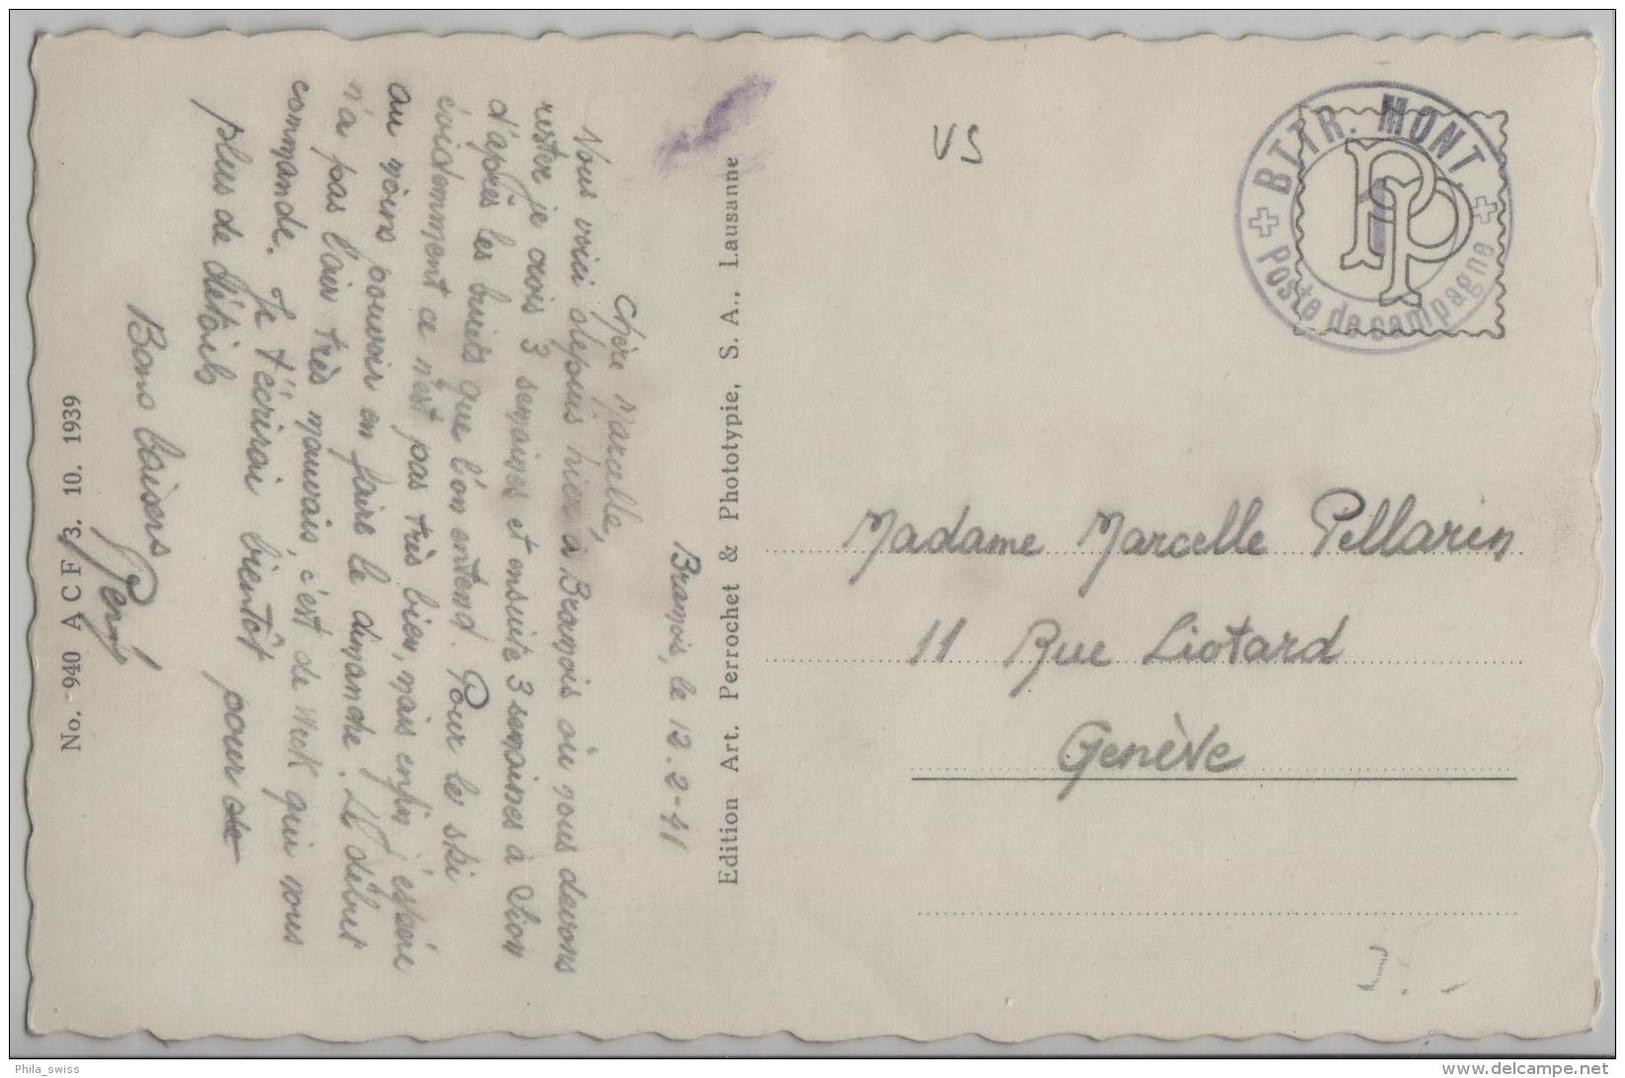 Bramois, le 12-2-41
Chère Marcelle,
Nous voici depuis hier à Bramois où nous devons
rester je crois 3 semaines et ensuite 3 semaines à Sion
d'après les bruits que l'on entend. Pour le ski
évidemment ce n'est pas très bien, mais enfin j'espère
au moins pouvoir en faire le dimanche. Le début
n'a pas l'air très mauvais, c'est de qui nous
commande. Je t'écrirai bientôt pour de
plus de détails
Bons baisers
Edition Art. Perrochet & Phototypie, S. A., Lausanne
No. 940 A C F 3. 10. 1939
VS
BTTR. MONT 1
Poste de campagne
PP
Madame Marcelle Pellarin
11 Rue Liotard
Genève
3.-
Phila_swiss
www.delcampe.net